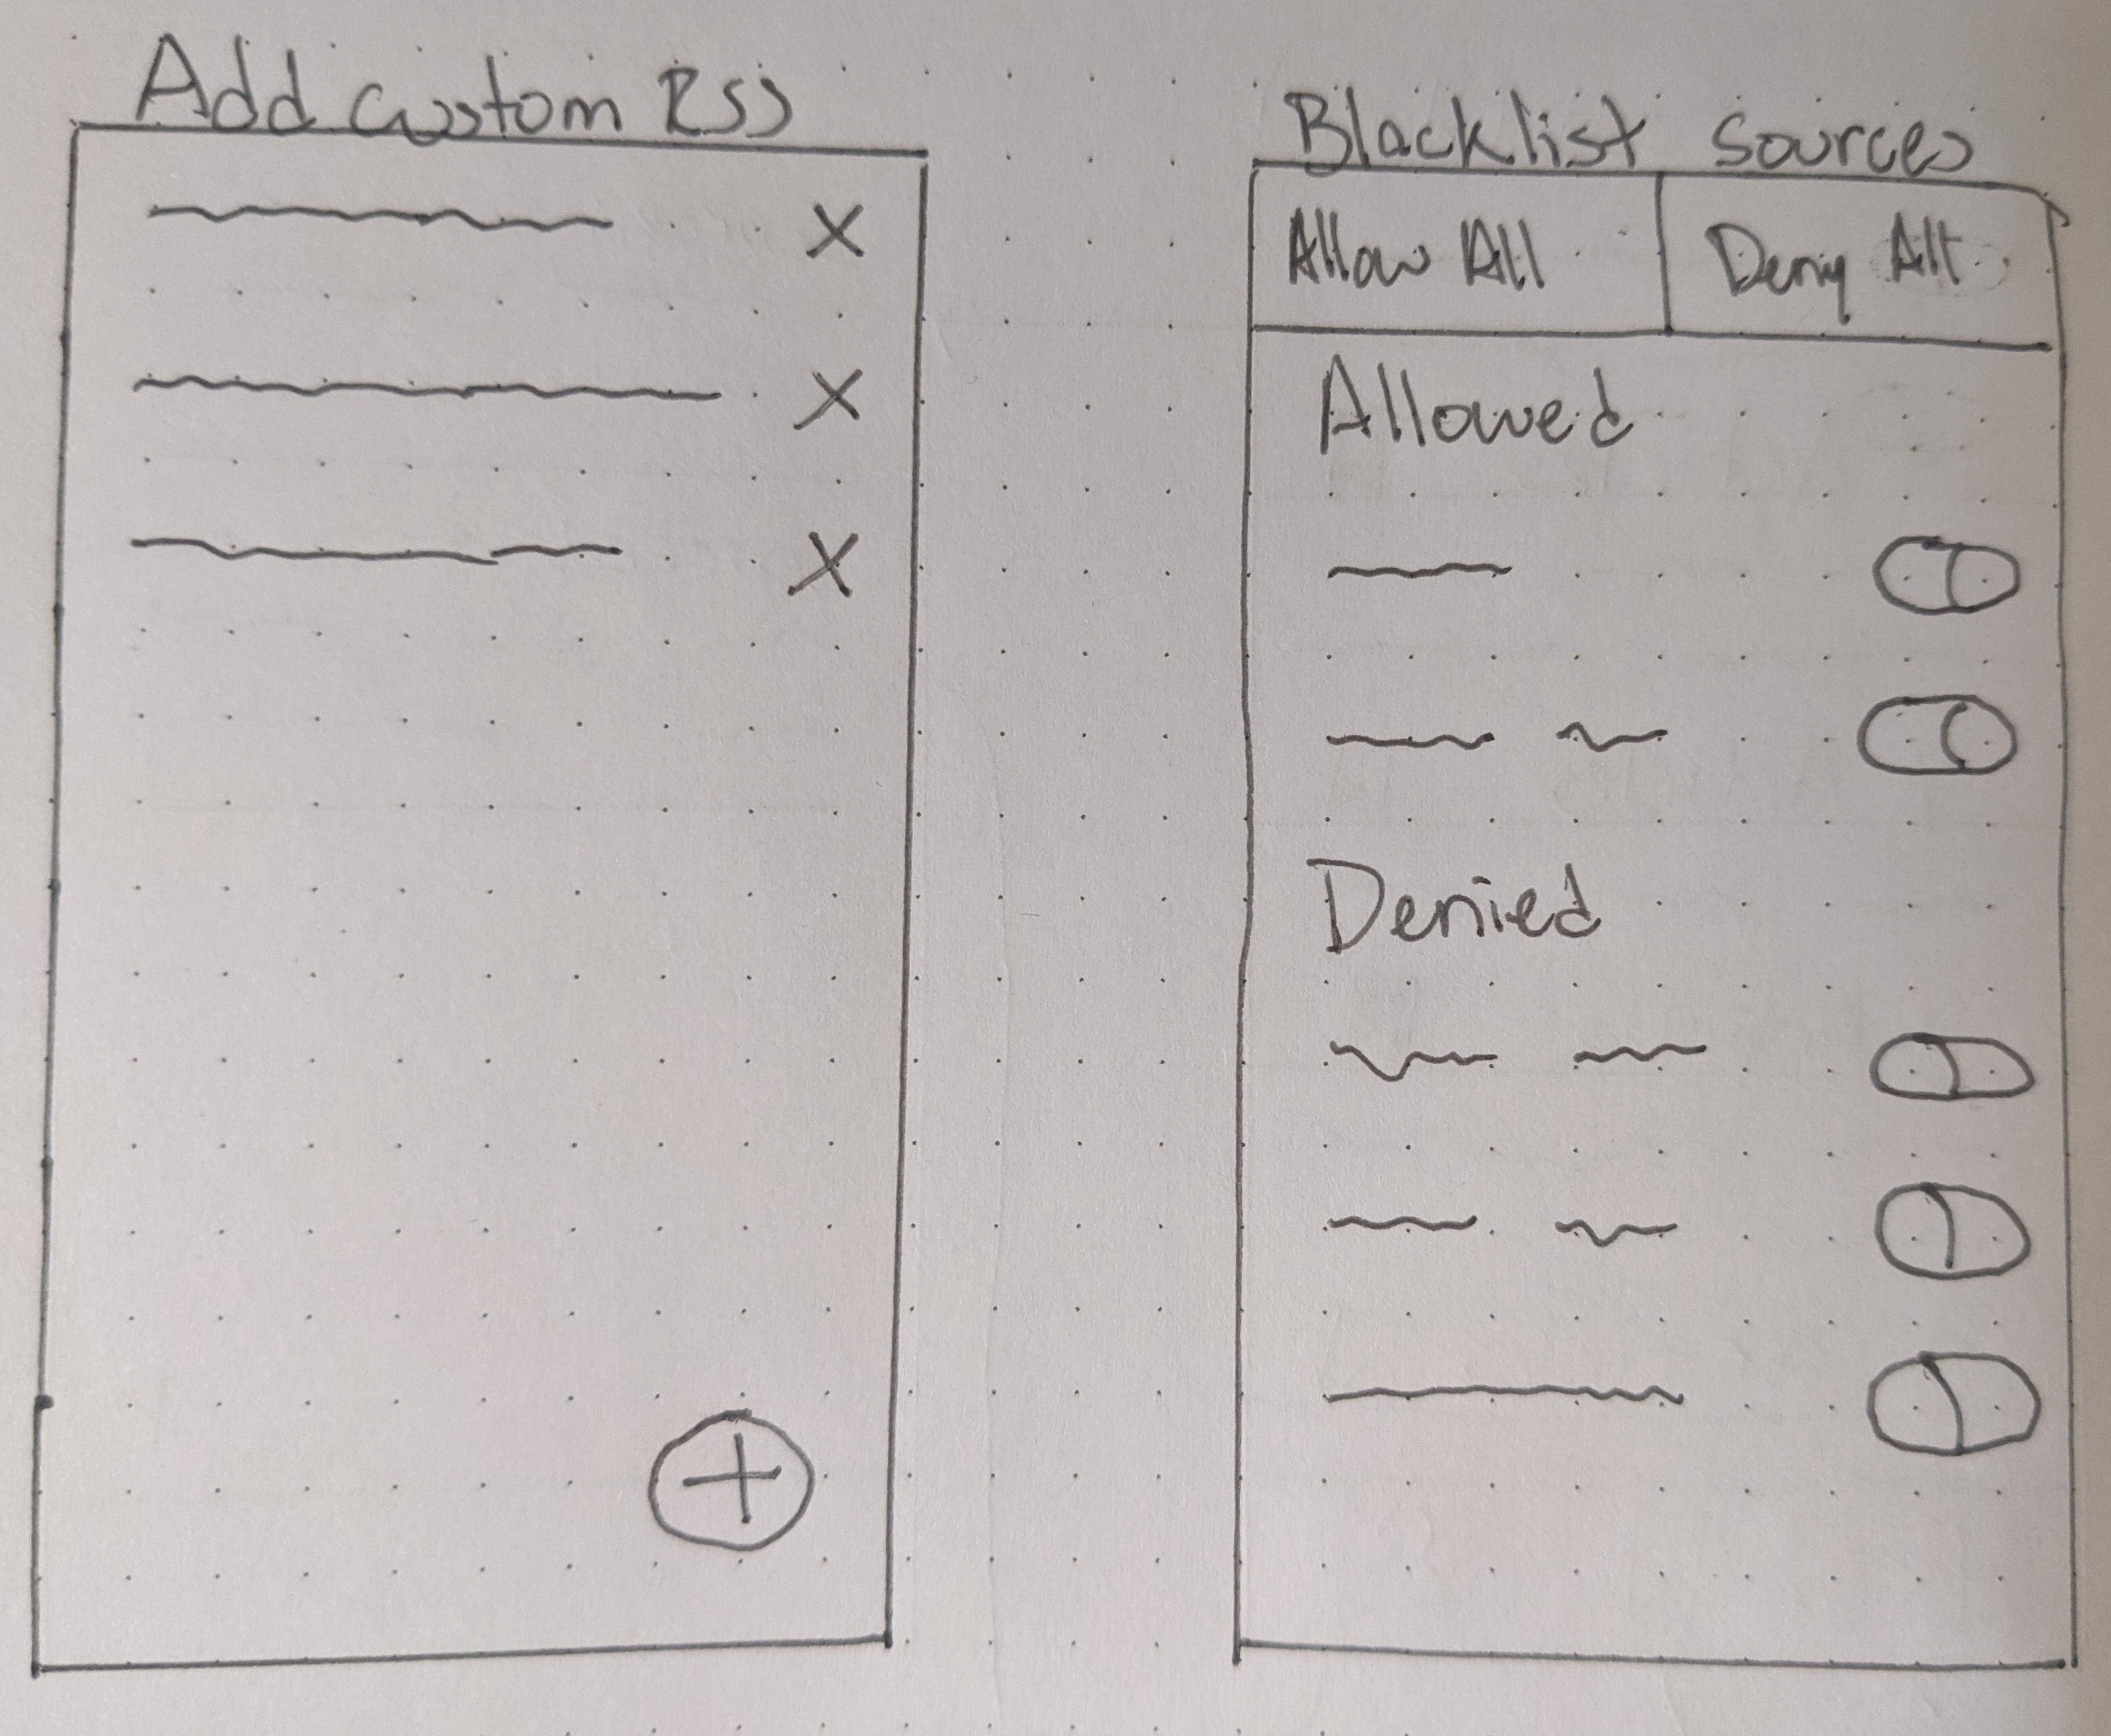 Add custom RSS
X
X
X
+
Blacklist sources
Allow All
Deny All
Allowed
Denied